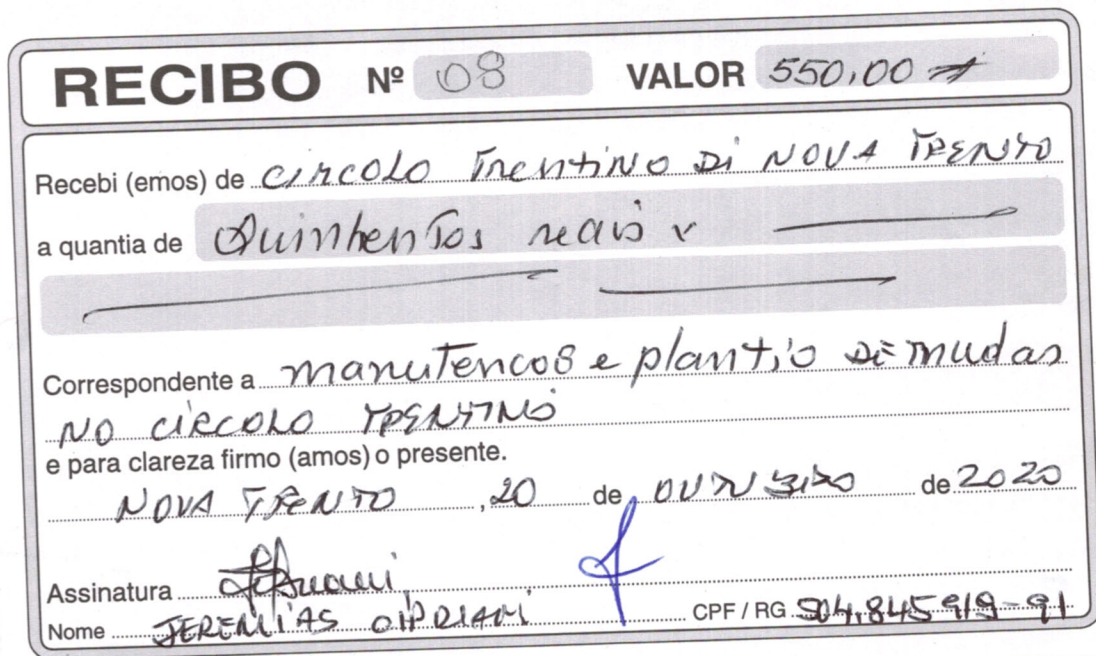 RECIBO Nº 08 VALOR 550,00
Recebi (emos) de CIRCOLO TRENTINO DI NOVA TRENTO
a quantia de Quinhentos reais
Correspondente a manutencos e plantio DE mudas
NO CIRCOLO TRENTINO
e para clareza firmo (amos) o presente.
NOVA TRENTO, 20 de OUTUBRO de 2020
Assinatura
Nome JEREMIAS CIPRIANI CPF / RG 904.845919-91